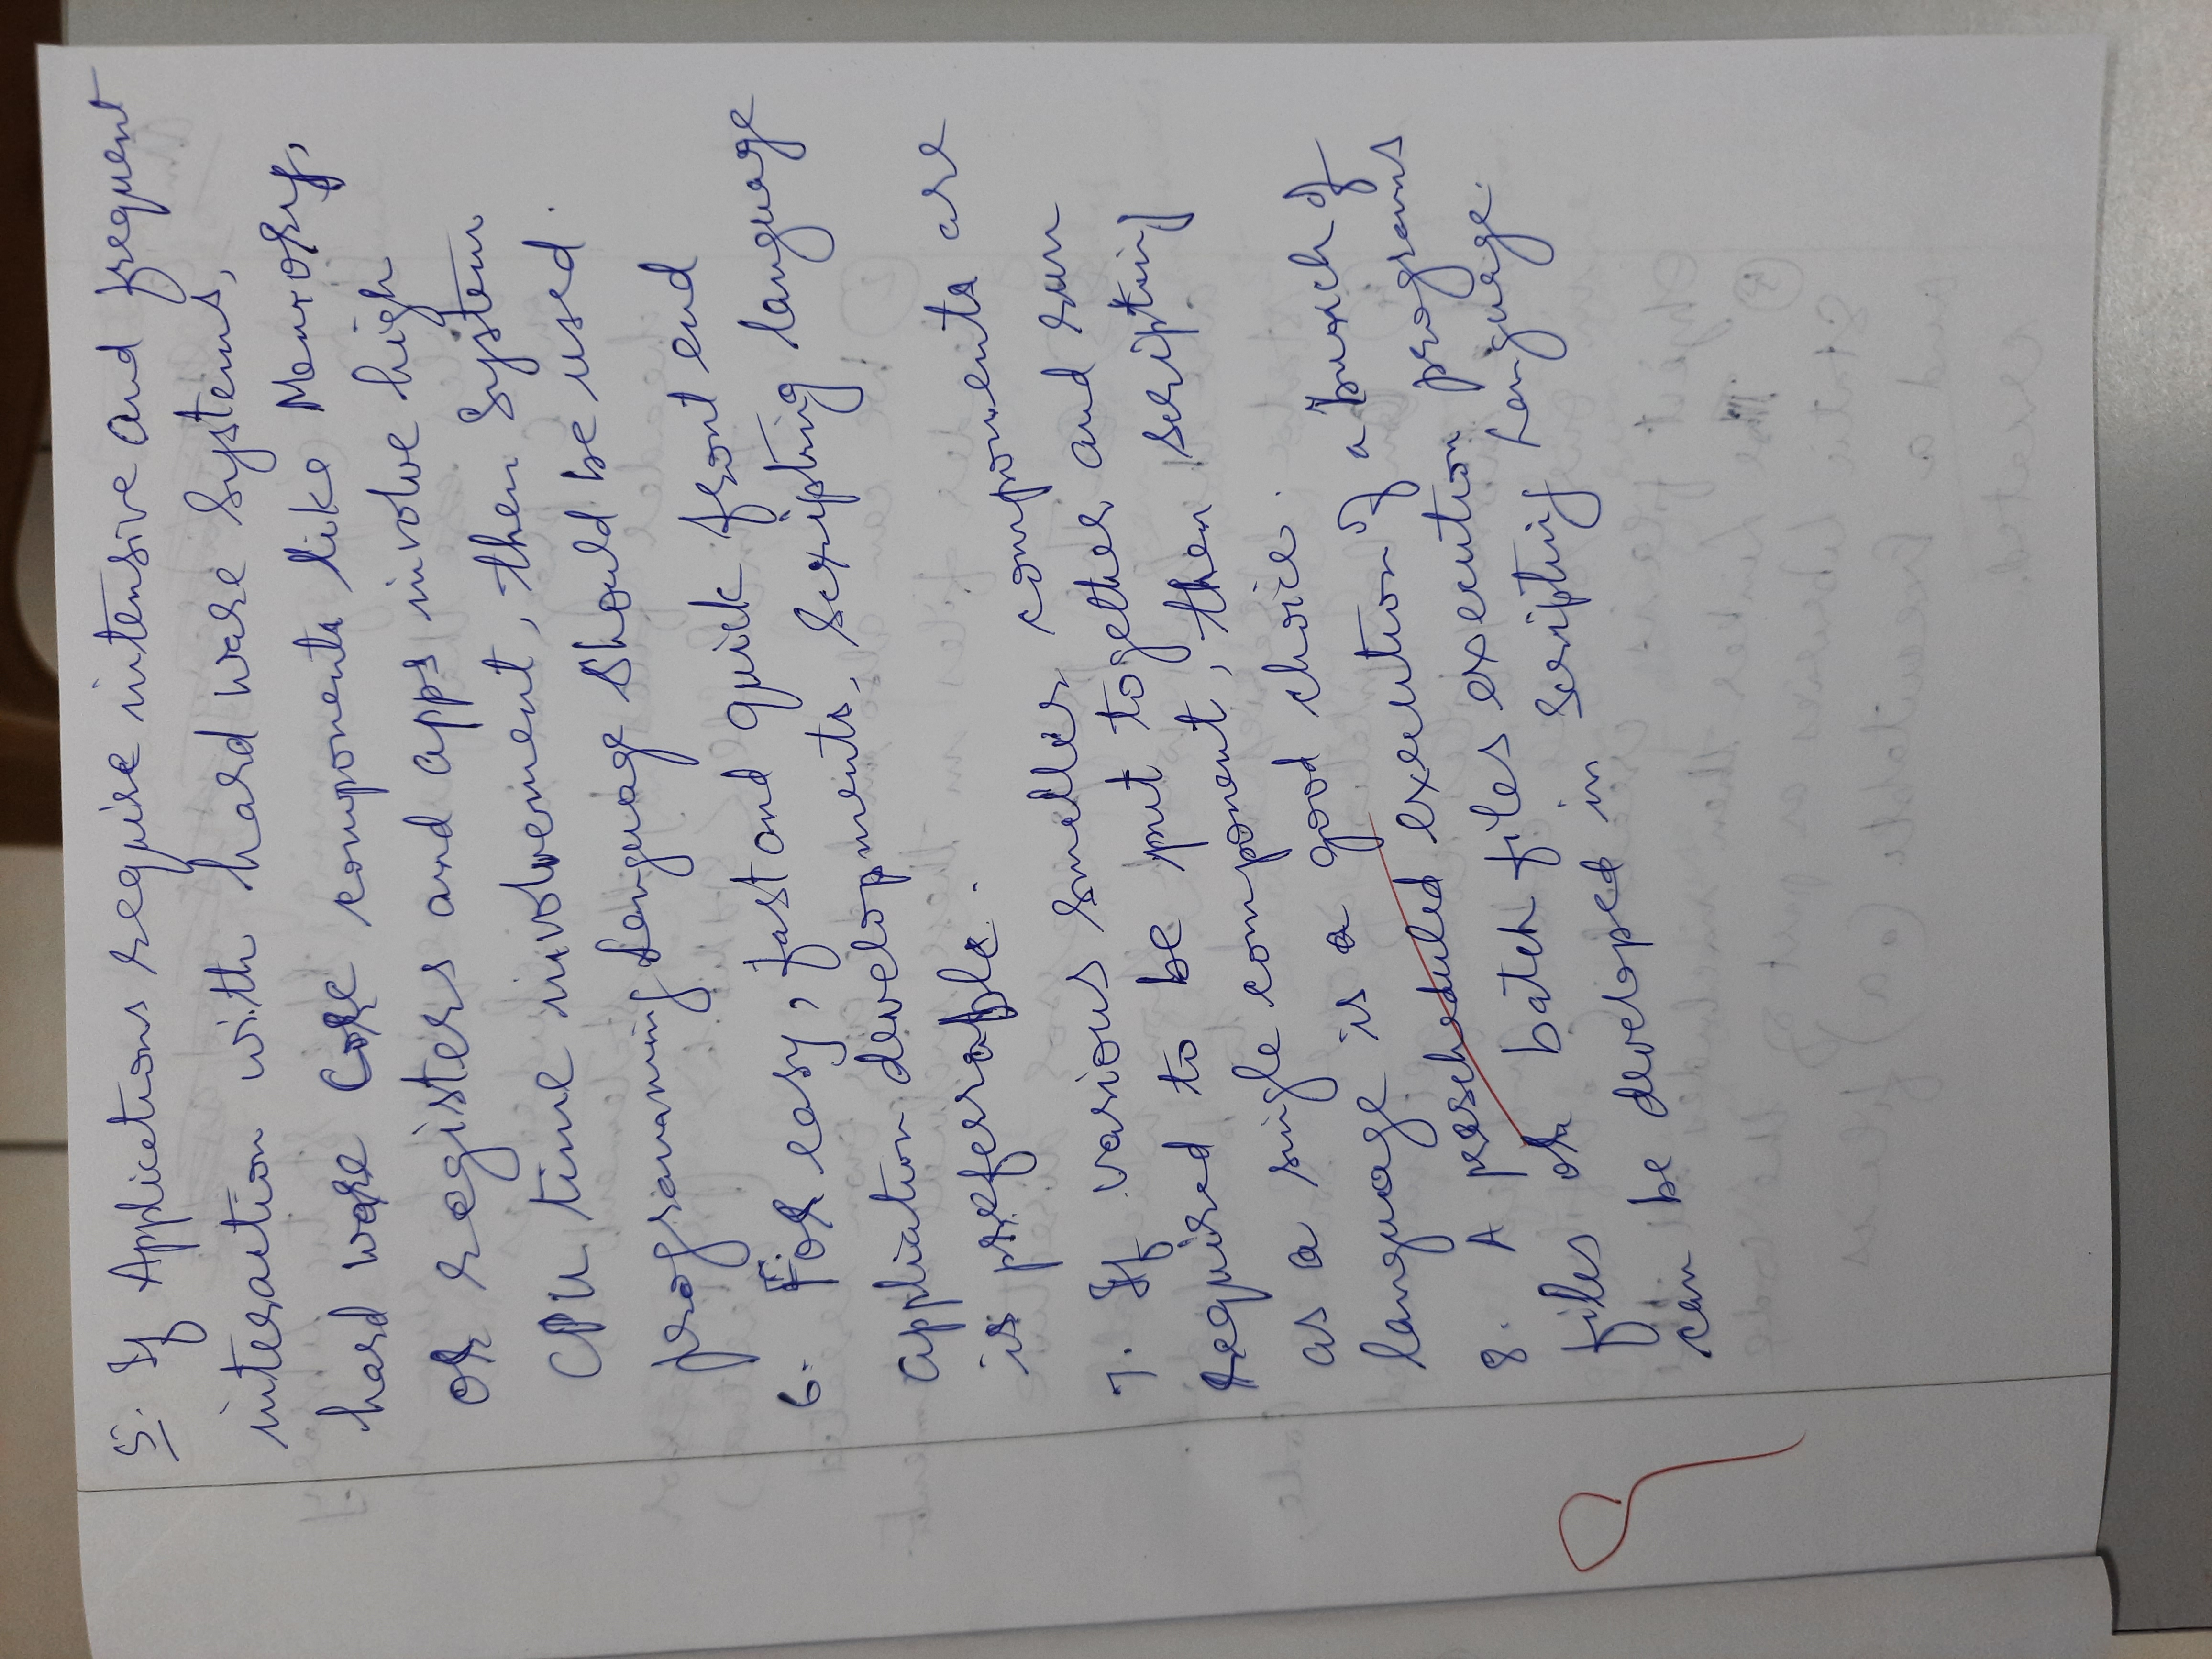 5. If Applications require intensive and frequent
interaction with hard ware Systems,
hard ware Core components like Memory,
or registers and apps involve high
CPU time involvement, then System
programming Language Should be used.
6. For easy, fast and quick front end
appliation developments, Scripting language
is preferrable.
7. If various smaller components are
required to be put together and run
as a single component, then scripting
language is a good choice.
8. A prescheduled execution of a bunch of
files or batch files execution programs
can be developed in Scripting Language.